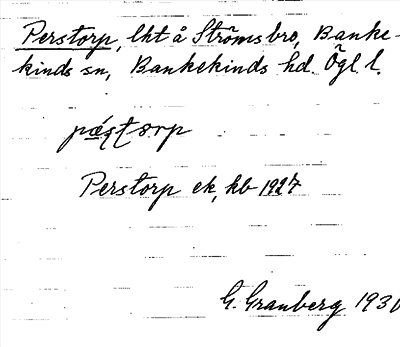 Perstorp, lht å Strömsbro, Banke-
kinds sn, Bankekinds hd. Ögl l.
Perstorp ek, kb 1927
G. Granberg 1930